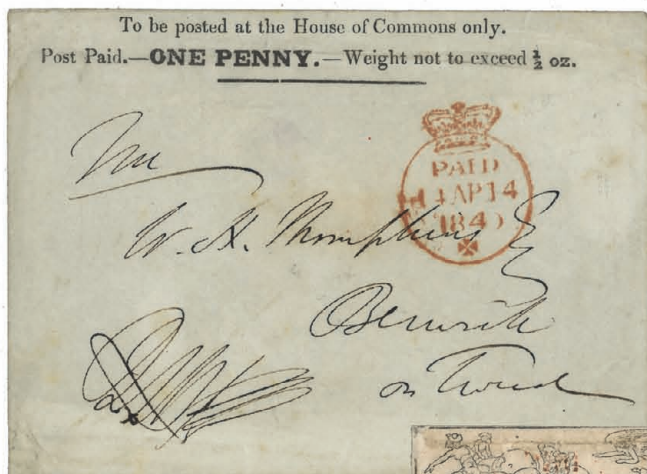 To be posted at the House of Commons only.
Post Paid.—ONE PENNY.—Weight not to exceed ½ oz.
PAID
14 AP 14
1840
W. H.
Berwick
on Tweed